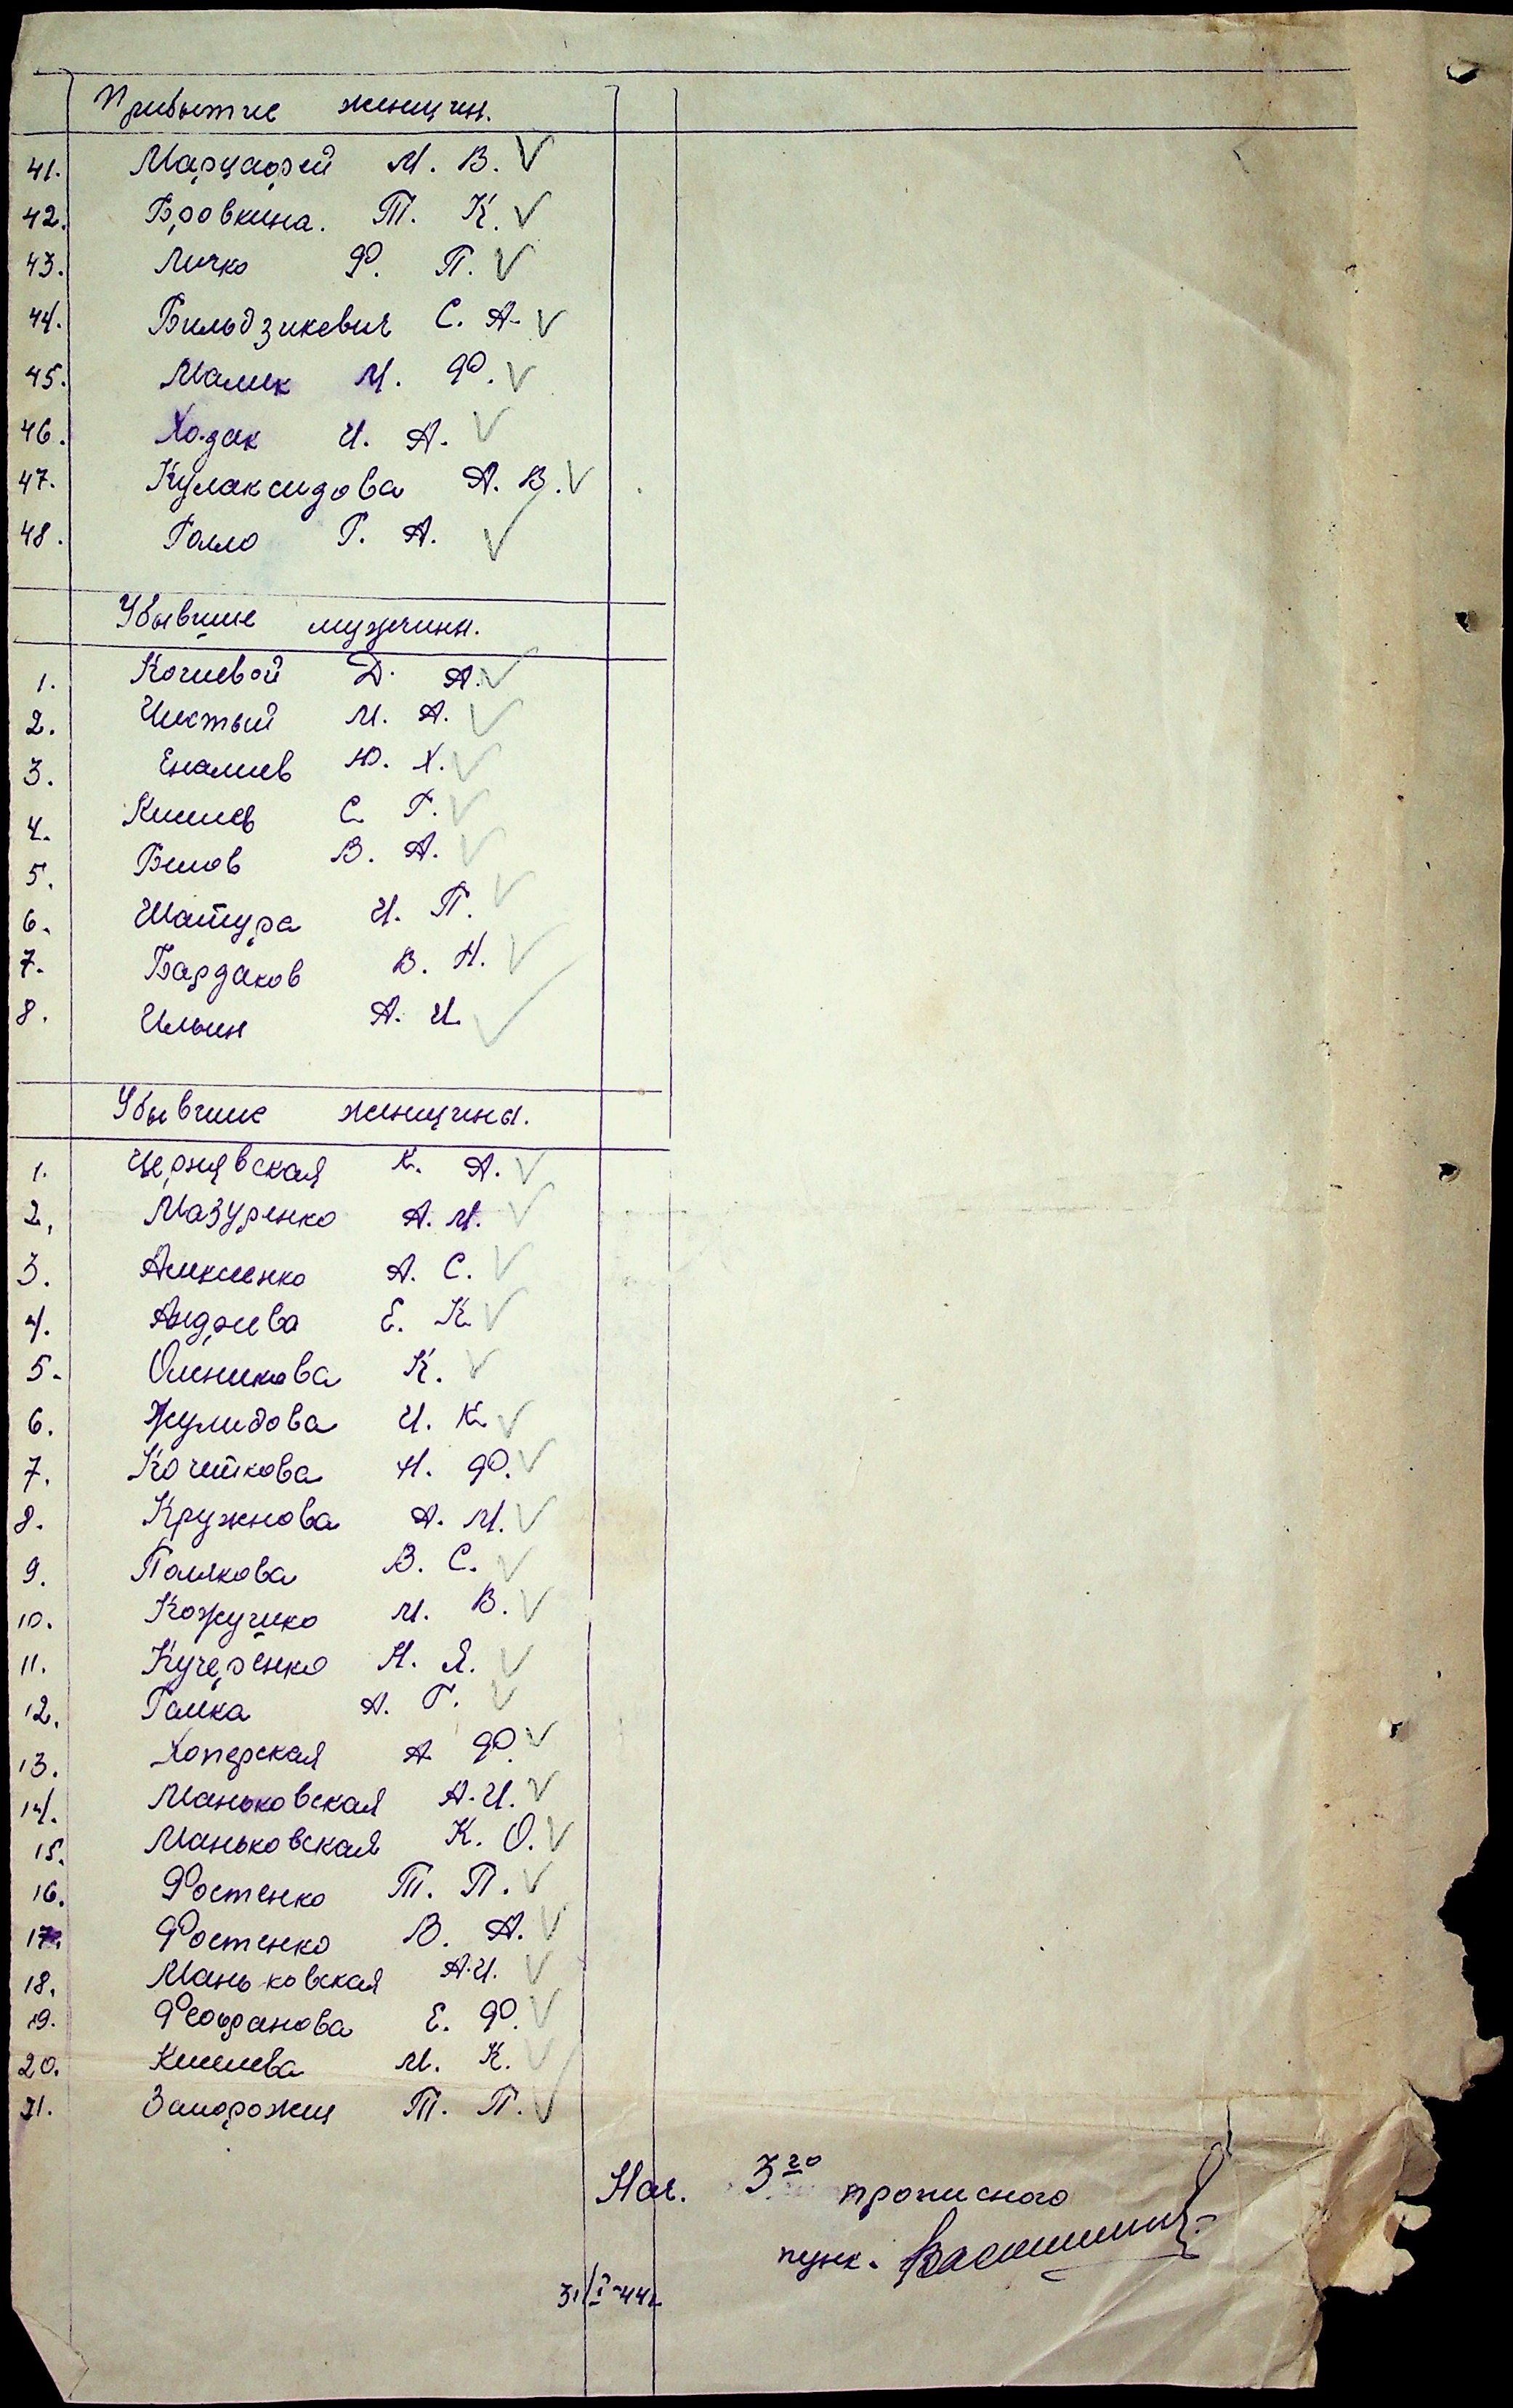 Прибытие женщин.
41. Марцафей М. В. V
42. Бровкина. Т. К. V
43. Личко Ф. П. V
44. Бильдзикевич С. А. V
45. Малик М. Ф. V
46. Ходак И. А. V
47. Кулаксидова А. В. V
48. Голло Г. А. V
Убывшие мужчины.
1. Кочневой Д. А. V
2. Чистый М. А. V
3. Еналиев Ю. Х. V
4. Кишиев С. Г. V
5. Белов В. А. V
6. Шатура И. П. V
7. Бардаков В. Н. V
8. Ильин А. И. V
Убывшие женщины.
1. Чернявская К. А. V
2. Мазуренко А. М. V
3. Аликиенко А. С. V
4. Андреева Е. К. V
5. Олейникова К. V
6. Жулидова И. К. V
7. Кочеткова Н. Ф. V
8. Кружнова А. М. V
9. Полякова В. С. V
10. Кожушко М. В. V
11. Кучеренко Н. Я. V
12. Галка А. Г. V
13. Хоперская А Ф. V
14. Маньковская А. И. V
15. Маньковская К. О. V
16. Фостенко Т. П. V
17. Фостенко В. А. V
18. Маньковская А. И. V
19. Феофанова Е. Ф. V
20. Киселева М. К. V
21. Запорожец Т. П. V
Нач. 3го прописного
пунк.
31/I-44г